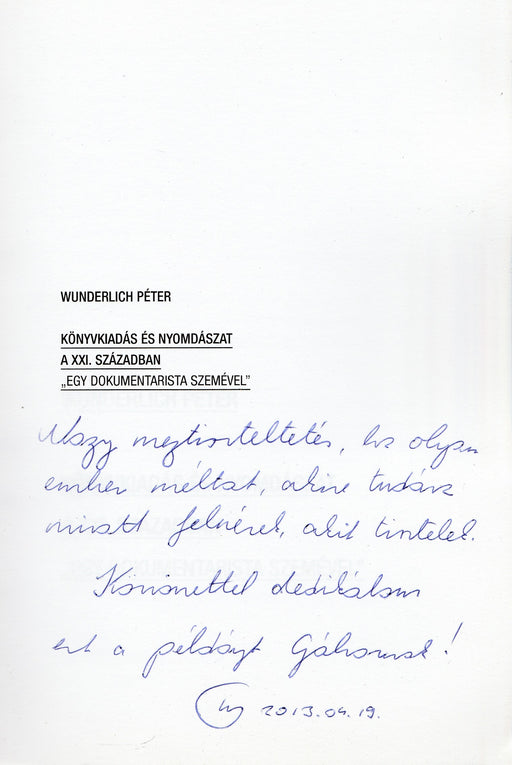 WUNDERLICH PÉTER
KÖNYVKIADÁS ÉS NYOMDÁSZAT
A XXI. SZÁZADBAN
„EGY DOKUMENTARISTA SZEMÉVEL”
Nagy megtiszteltetés, ha olyan
ember méltat, akire tudása
miatt felnézek, akit tisztelek.
Köszönettel dedikálom
ezt a példányt Gábornak!
2013.04.19.